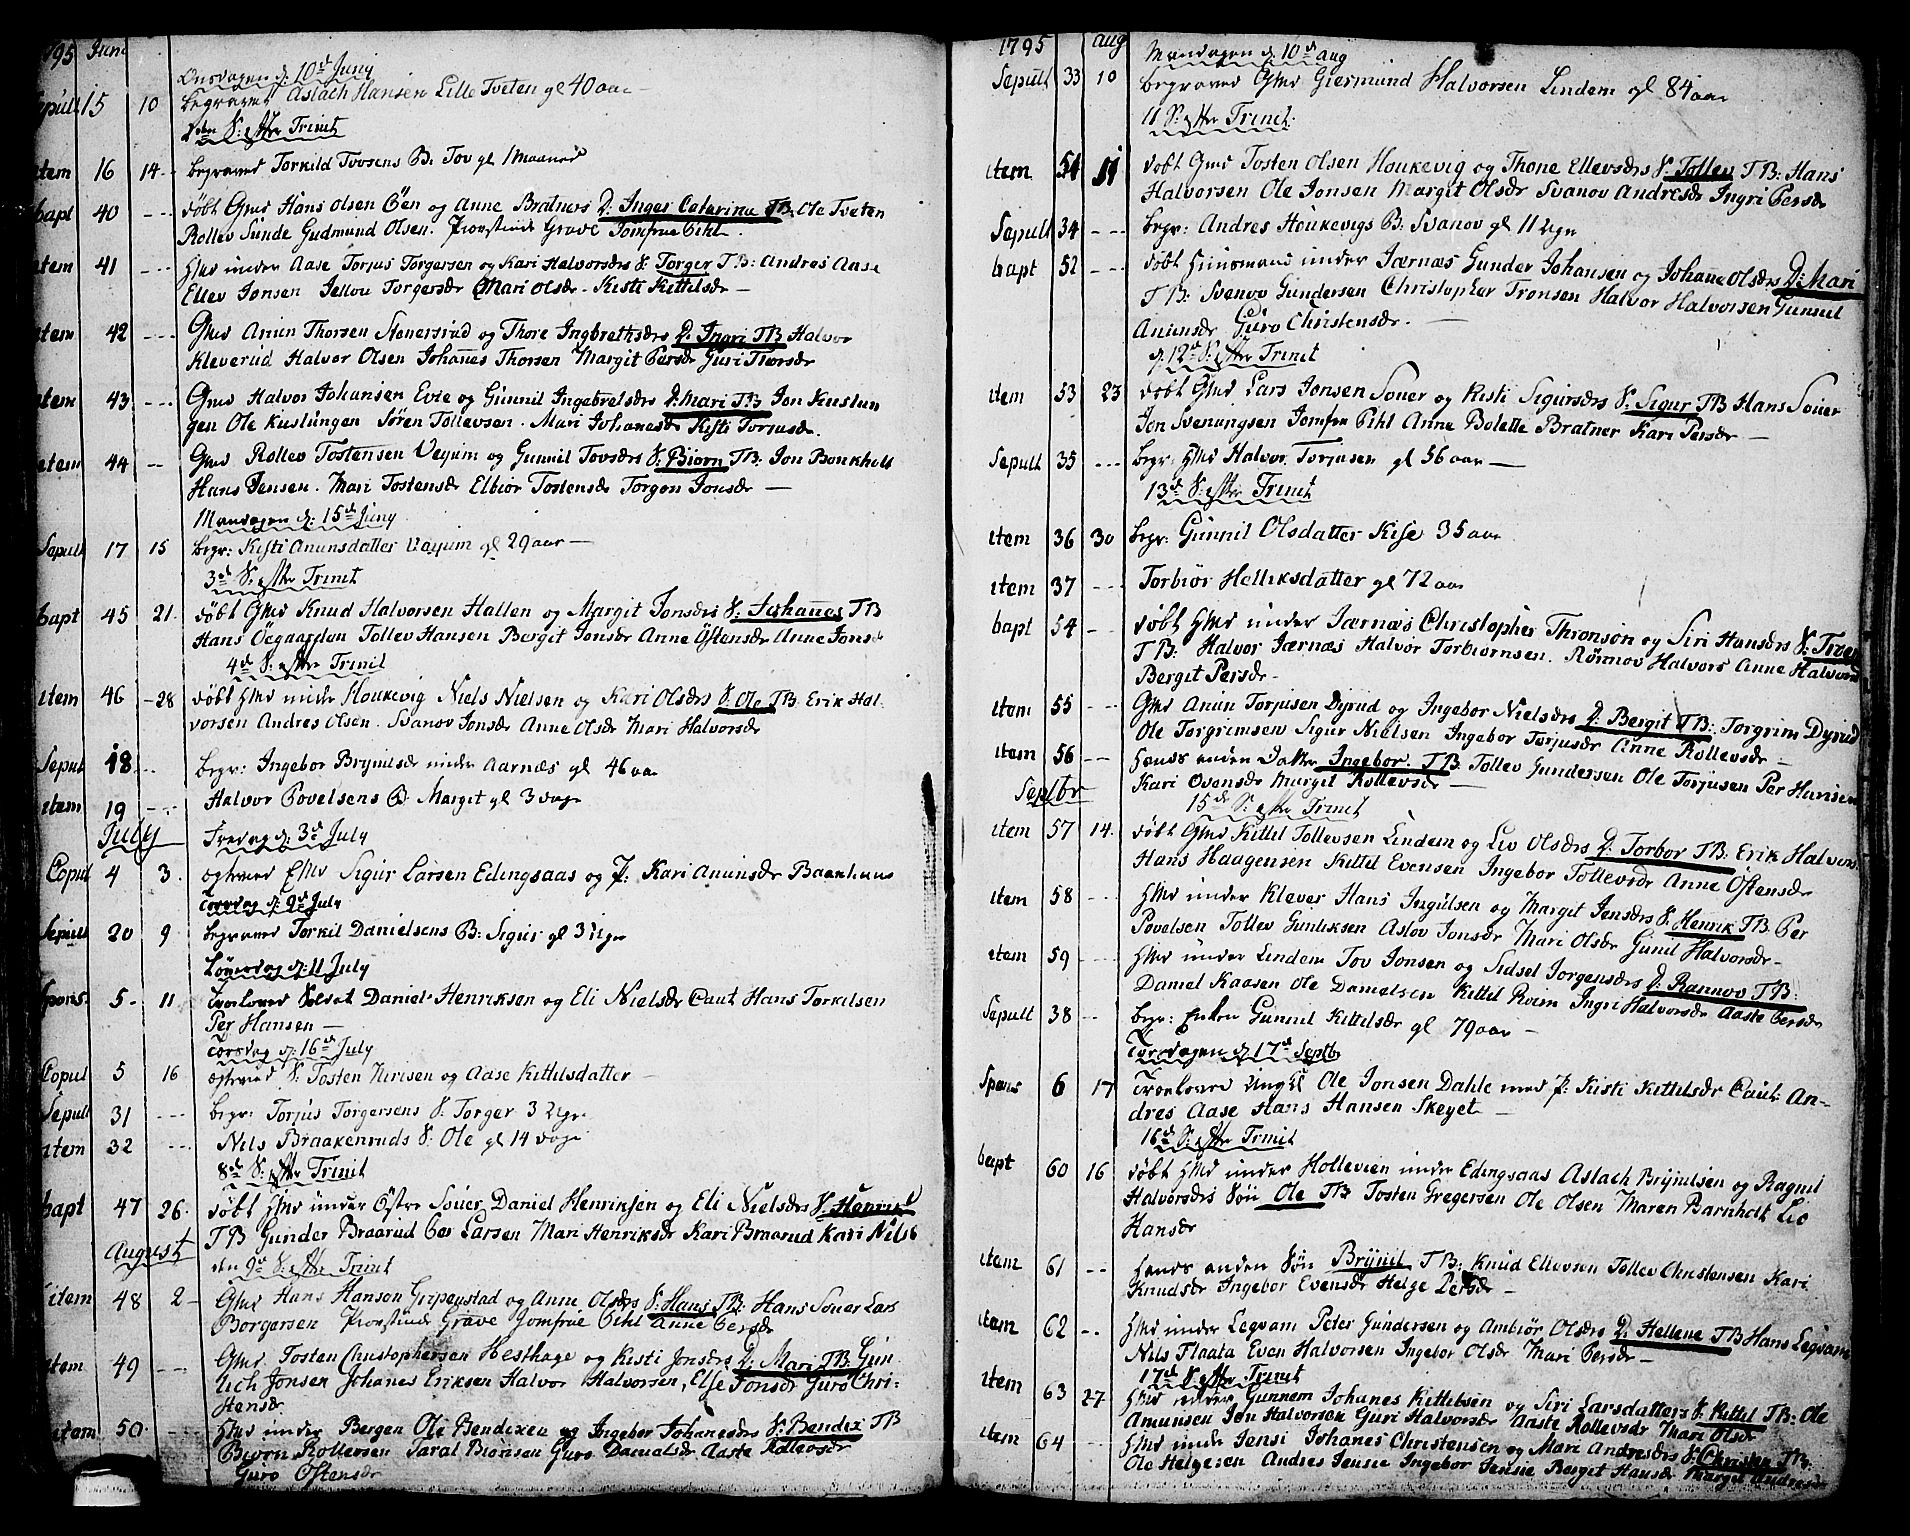 1795 Juni
Onsdagen d: 10de Juny
Sepult 15 10 begravet Aslach Hansen Lille Tveten gl 40 aar
2den S: efter Trinit
item 16 14 begraved Torkild Tovsens B: Tov gl 1 Maaned
bapt 40 døbt Gmd Hans Olsen Øen og Anne Bratners D: Inger Catarina TB: Ole Tveten
Rollev Sunde Gudmund Olsen. Provstinde Grave Jomfrue Pihl
item 41 Hmd under Aase Torjus Torgersen og Kari Halvorsdrs S: Torger TB: Andres Aase
Ellev Jonsen Torgersdr Mari Olsdr. Kisti Kittilsdr
item 42 Gmd Anun Thorsen og Thore Ingbrethsdrs D: Ingri TB Halvor
Kleverud Halvor Olsen Johanes Thorsen Margit Persdr Guri Thorsdr
item 43 Gmd Halvor Johansen Evie og Gunnil Ingebretsdrs D: Mari TB Jon Kuslun
gen Ole Kuslungen Søren Tollevsen. Mari Johanesdr Kisti Torjusdr.
item 44 Gmd Rollev Tostensen Veyum og Gunnil Tovsdrs S: Biørn TB: Jon Bonkholt
Hans Jensen. Mari Tostensdr Elbior Tostensdr Torgon Jonsdr
Mandagen d: 15de Juny
Sepult 17 15 begr: Kisti Anunsdatter Veyum gl 29 aar
3de S: efter Trinit
bapt 45 21. døbt Gmd Knud Halvorsen Hallen og Margit Jonsdrs S: Johanes TB
Hans Øegaarden Tollev Hansen Bergit Jonsdr Anne Østensdr Anne Jonsd
4de S: efter Trinit
item 46 28 døbt Hmd under Houkevig Niels Nielsen og Kari Olsdrs S: Ole TB Erik Hal
vorsen Andres Olsen. Svanov Jonsdr Anne Olsdr Mari Halvorsdr
Sepult 18 begr: Ingebor Brynilsdr under Aarnæs gl 46 aar
item 19 Halvor Povelsens B: Margit gl 3 dage
July Fredag d: 3de July
Copul 4 3. egteviet Sigur Larsen Edingsaas og P: Kari Anunsdr Baarnhus
Torsdag d: 9de July
Sepult 20 9 begraved Torkil Danielsens B: Sigur gl 3 Uger
Løverdag d: 11 July
Spons. 5 11 Troelovet Soldat Daniel Henriksen og Eli Nielsdr Caut Hans Torkilsen
Per Hansen
Torsdag d: 16de July
Copul 5 16 egteviet S: Tosten og Aase Kittilsdatter
Sepult 31 begr: Torjus Torgersens S: Torger 3 Uger
item 32 Nils Braakeruds S: Ole gl 14 dage
8de S: efter Trinit
bapt 47 26. døbt Hmd under Østre Souer Daniel Henriksen og Eli Nielsdrs S: Henrik
TB Gunder Braarud Per Larsen Mari Henriksdr Kari Braarud Kari Nilsd
August den 9de S: efter Trinit
item 48 2 Gmd Hans Hanson Gripenstad og Anne Olsdrs S: Hans TB: Hans Souer Lars
Borgersen Provstinde Grave Jomfrue Pihl Anne Persdr
item 49 Gmd. Tosten Christophersen Hesthage og Kisti Jonsdrs D: Mari TB: Gun
Jonsen Johanes Eriksen Halvor Halvorsen, Else Jonsdr Guro Chri-
stensdr
item 50. Hmd under Bergen Ole Bendixen og Ingebor Johanesdrs S: Bendix TB
Biørn Rollevsen Taral Biønsen Guro Danielsdr Aaste Rollevsdr
Guro Østensdr
1795 Aug
Mandagen d: 10de Aug
Sepult 33 10 begraved Gmd Giermund Halvorsen Lindem gl 84 aar
11 S: efter Trinit.
item 51 11 døbt Gmd Tosten Olsen Houkevig og Thone Ellevsdrs S: Tollev TB: Hans
Halvorsen Ole Jonsen Margit Olsdr Svanov Andresdr Ingri Persdr
Sepult 34 begr: Andres Houkevigs B: Svanov gl 11 Uger
bapt 52 døbt Huusmand under Jærnæs Gunder Johansen og Johane Olsdrs D: Mari
TB: Svanov Gundersen Christopher Tronsen Halvor Halvorsen Gunnil
Anunsdr Guro Christensdr.
d. 12te S: efter Trinit
item 53 23 døbt Gmd Lars Jonsen Souer og Kisti Sigursdrs S: Sigur TB Hans Souer
Jon Svenungsen Jomfru Pihl Anne Bolette Bratner Kari Persdr
Sepult 35 begr: Hmd Halvor Torjusen gl 56 aar
13de S: efter Trinit
item 36 30 begr: Gunnil Olsdatter Kise 35 aar
item 37 Torbiør Helliksdatter gl 72 aar
bapt 54 døbt Hmd under Jærnæs Christopher Thronson og Siri Hansdrs S: Tron
TB: Halvor Jærnæs Halvor Torbiornsen. Rønnov Halvors Anne Halvord
Bergit Persdr
item 55 Gmd Anun Torjusen Dyrud og Ingebor Nielsdrs D: Bergit TB: Torgrim Dyrud
Ole Torgrimsen Sigur Nielsen Ingebor Torjusdr Anne Rollevsdr
item 56 Hands anden Datter Ingebor. TB. Tollev Gundersen Ole Torjusen Per Hansen
Kari Ovensdr Margit Rollevsdr
Septbr 15de S: efter Trinit
item 57 14. døbt Gmd Kittil Tollevsen Lindem og Liv Olsdrs D: Torbor TB: Erik Halvors
Hans Haagensen Kittel Evensen Ingebor Tollevsdr Anne Østensdr
item 58 Hmd under Klever Hans Ingulsen og Margit Jensdrs S: Henrik TB: Per
Povelsen Tollev Gunliksen Aslov Jonsdr Mari Olsdr Gunil Halvorsdr
item 59 Hmd under Lindem Tov Jonsen og Sidsel Jorgensdrs D: Rannov TB:
Daniel Kaasen Ole Danielsen Kittil Ingri Halvorsdr Aaste Persdr
Sepult 38 begr: Enken Gunnil Kittilsdr gl 79 aar
Torsdagen d 17de Septbr
Spons 6 17 Troelovet Ungkl Ole Jonsen Dahle med P: Kisti Kittilsdr Caut: An-
dres Aase Hans Hansen Skeyet
16de S: efter Trinit
bapt 60 16 døbt Hmd under Hollevien under Edingsaas Aslach Brynilsen og Ragnil
Halvorsdrs Søn Ole TB Tosten Gregersen Ole Olsen Maren Barnholt Liv
Hansdr
item 61 Hands anden Søn Brynil TB: Knud Ellevsen Tollev Christensen Kari
Knudsdr Ingebor Evensdr Helge Persdr
item 62 Hmd under Legvam Peter Gundersen og Ambiør Olsdrs D: Hellene TB Hans Legvam
Nils Flaata Even Halvorsen Ingebor Olsdr Mari Persdr
17de S: efter Trinit
item 63 27 Hmd under Gunnem Johanes Kittilsen og Siri Larsdatters S: Kittil TB: Ole
Amundsen Jon Halvorsen Guri Halvorsdr Aaste Rollevsdr Mari Olsdr
item 64 Hmd under Jensi Johanes Christensen og Mari Andresdrs S: Christen TB:
Ole Helgesen Andres Jensie Ingebor Jensie Bergit Hansdr Margit Andresdr